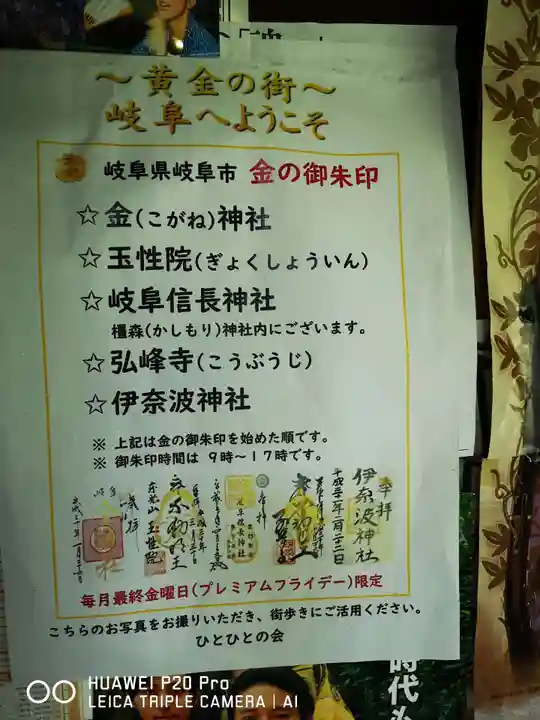 ～黄金の街～
岐阜へようこそ
岐阜県岐阜市 金の御朱印
☆金(こがね)神社
☆玉性院(ぎょくしょういん)
☆岐阜信長神社
橿森(かしもり)神社内にございます。
☆弘峰寺(こうぶうじ)
☆伊奈波神社
※ 上記は金の御朱印を始めた順です。
※ 御朱印時間は 9時～17時です。
奉拝
伊奈波神社
岐阜信長神社
玉性院
毎月最終金曜日(プレミアムフライデー)限定
こちらのお写真をお撮りいただき、街歩きにご活用ください。
ひとひとの会
時代
HUAWEI P20 Pro
LEICA TRIPLE CAMERA | AI